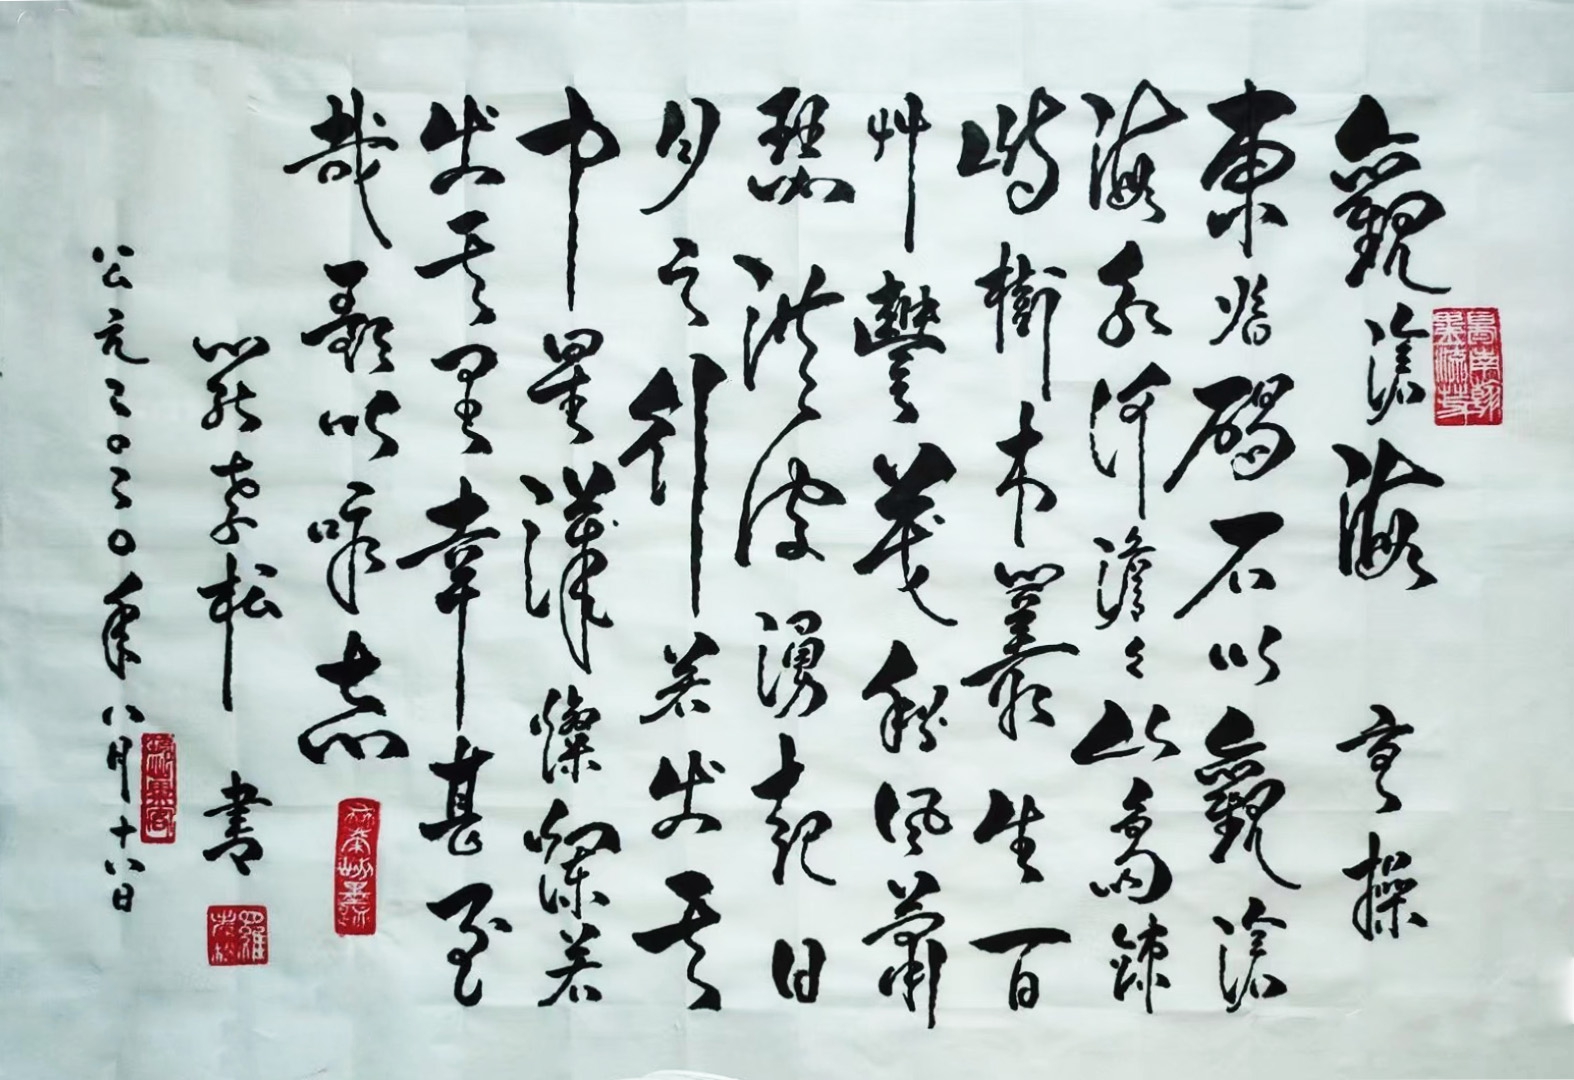 觀滄海 曹操
東臨碣石以觀滄
海水何澹々山島竦
峙樹木叢生百
艸豐茂秋風蕭
瑟洪波湧起日
月之行若出其
中星漢燦爛若
出其里幸甚至
哉歌以詠志
羅松 書
公元二〇二〇年八月十八日